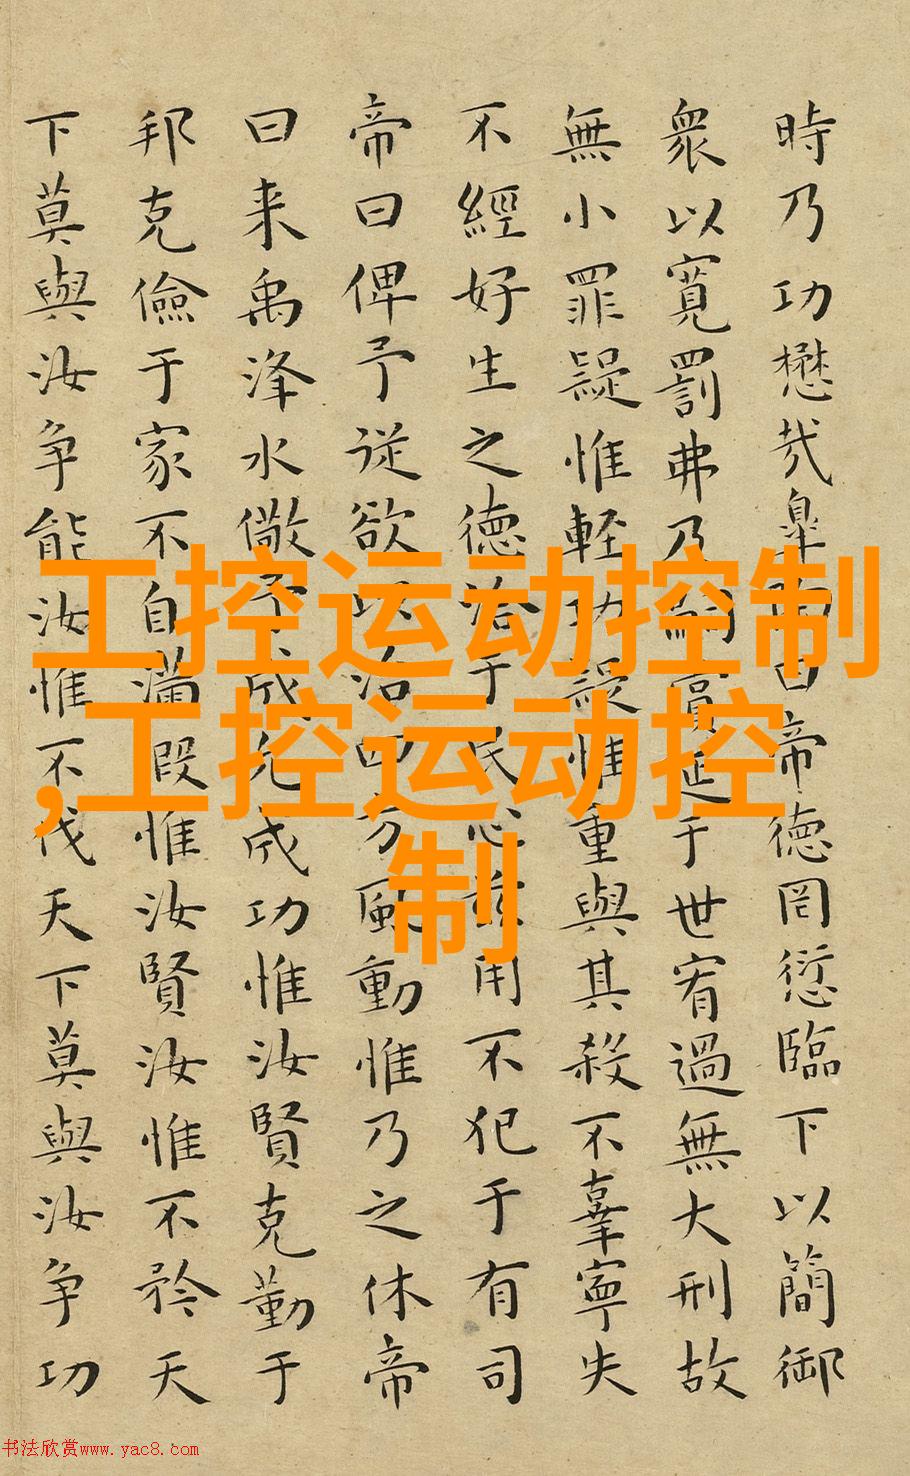 時乃功懋哉皋陶曰帝德罔愆臨下以簡御
衆以寬罰弗乃嗣賞延于世宥過無大刑故
無小罪疑惟輕功疑惟重與其殺不辜寧失
不經好生之德洽于民心茲用不犯于有司
帝曰俾予從欲以治四方風動惟乃之休帝
曰来禹洚水儆予成允成功惟汝賢克勤于
邦克儉于家不自滿假惟汝賢汝惟不矜天
下莫與汝争能汝惟不伐天下莫與汝争功
工控运动控制
,工控运动控
制
书法欣赏www.yac8.com